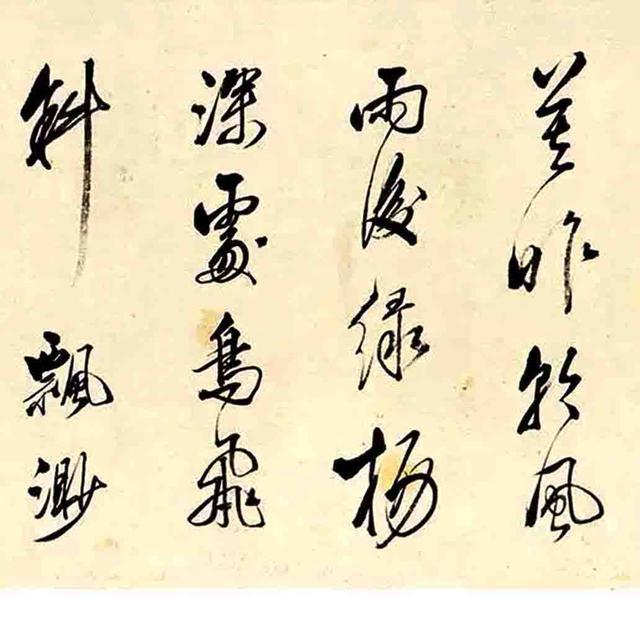 昨朝風
雨後綠楊
深處鳥飛
斜飄渺